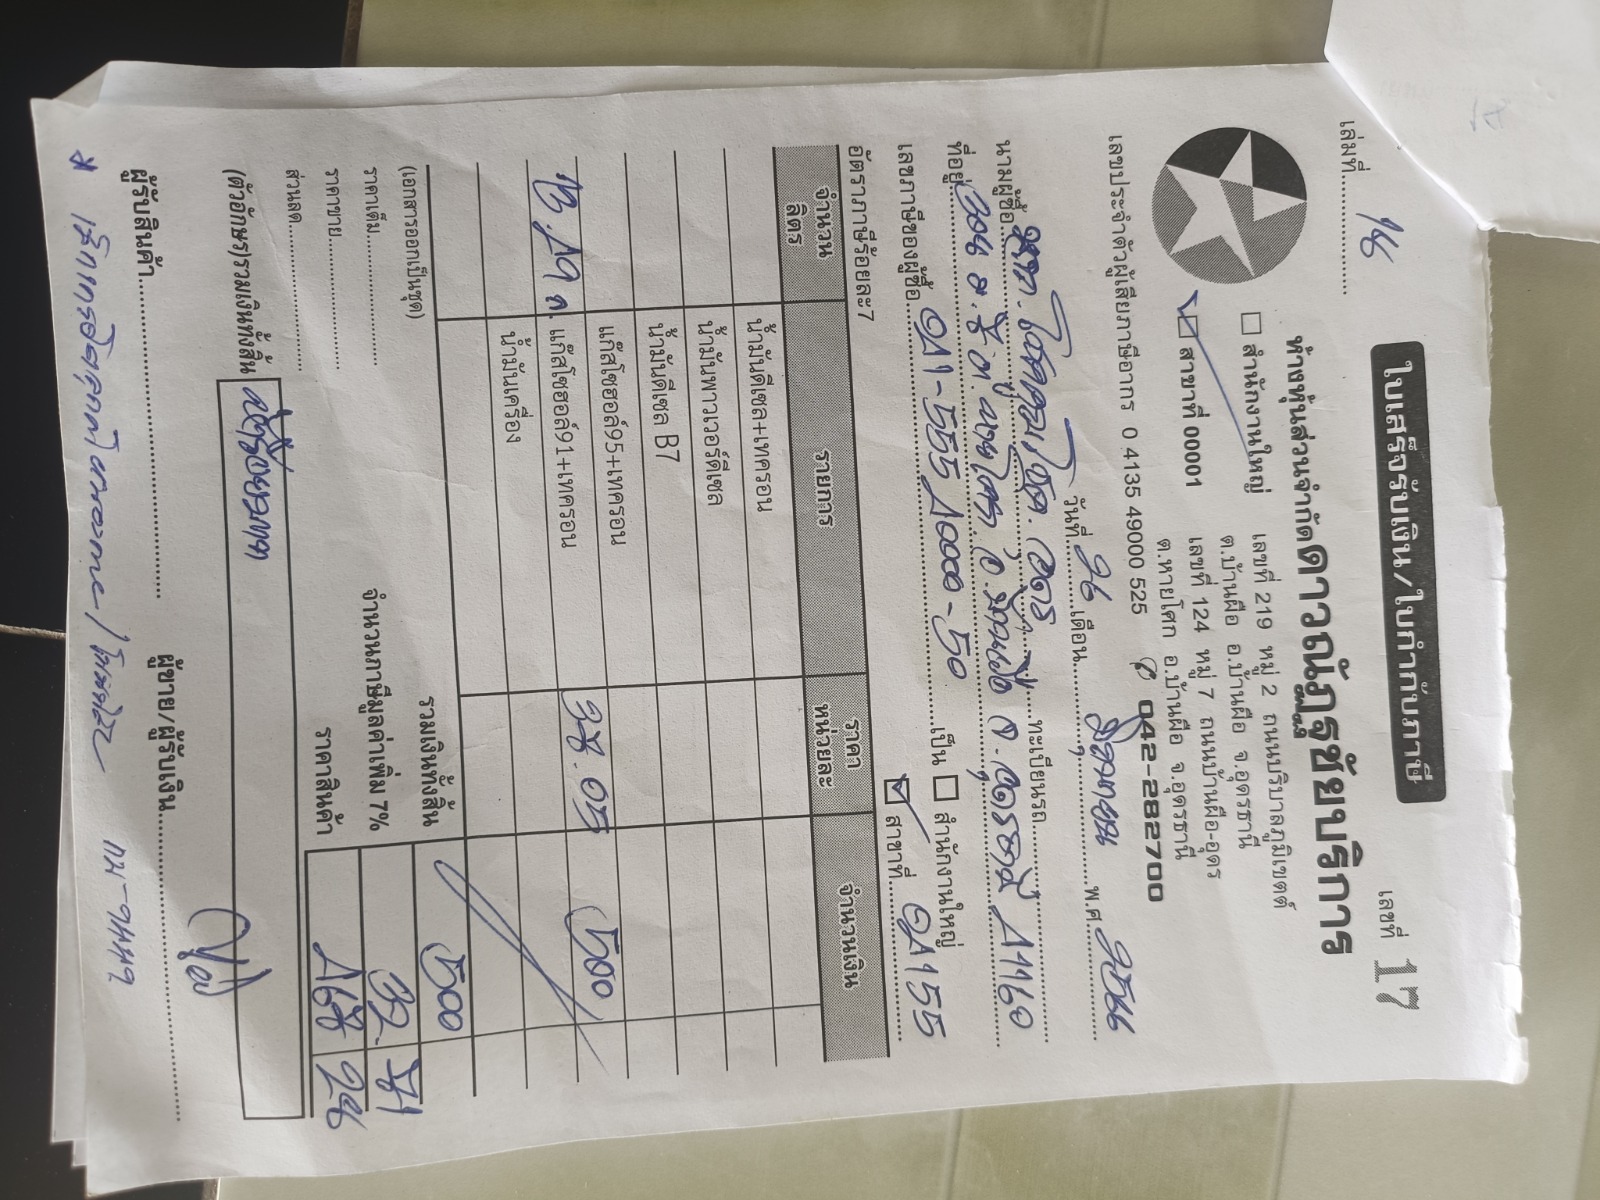 ใบเสร็จรับเงิน/ใบกำกับภาษี
เล่มที่
เลขที่ 17
ห้างหุ้นส่วนจำกัดดาวณัฏฐชัยบริการ
สำนักงานใหญ่ เลขที่ 219 หมู่ 2 ถนนบริบาลภูมิเขตต์
ต.บ้านผือ อ.บ้านผือ จ.อุดรธานี
สาขาที่ 00001 เลขที่ 124 หมู่ 7 ถนนบ้านผือ-อุดร
ต.หายโศก อ.บ้านผือ จ.อุดรธานี
เลขประจำตัวผู้เสียภาษีอากร 0 4135 49000 525 042-282700
วันที่ 26 เดือน มิถุนายน พ.ศ. 2566
นามผู้ซื้อ ทะเบียนรถ
ที่อยู่ จ.อุดรธานี 41160
เลขภาษีของผู้ซื้อ 041-555 40000-50 เป็น สำนักงานใหญ่
อัตราภาษีร้อยละ7 สาขาที่ 04155
จำนวน ลิตร รายการ ราคา หน่วยละ จำนวนเงิน
น้ำมันดีเซล+เทครอน
น้ำมันพาวเวอร์ดีเซล
น้ำมันดีเซล B7
แก๊สโซฮอล์95+เทครอน
แก๊สโซฮอล์91+เทครอน 500
น้ำมันเครื่อง
(เอกสารออกเป็นชุด) รวมเงินทั้งสิ้น 500
ราคาเต็ม จำนวนภาษีมูลค่าเพิ่ม 7% 32 71
ราคาขาย ราคาสินค้า
ส่วนลด
(ตัวอักษร)รวมเงินทั้งสิ้น ห้าร้อยบาท
ผู้รับสินค้า ผู้ขาย/ผู้รับเงิน